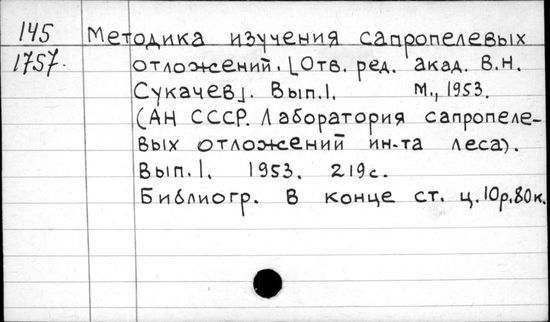 145
1757.
Методика изучения сапропелевых
отложений. [Отв. ред. акад. В.Н.
Сукачев]. Вып.1. М., 1953.
(АН СССР. Лаборатория сапропеле-
вых отложений ин-та леса).
Вып.1. 1953. 219с.
Библиогр. в конце ст. ц.10р.80к.